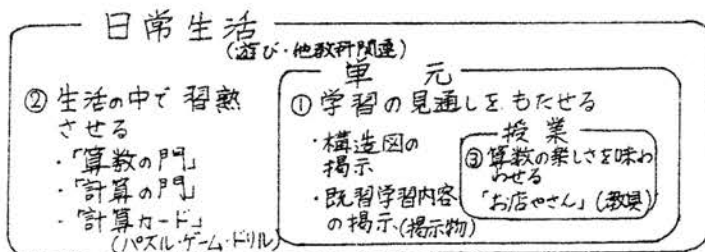 日常生活
(遊び・他教科関連)
②生活の中で習熟
させる
・「算数の門」
・「計算の門」
・「計算カード」
(パズル・ゲーム・ドリル)
単元
①学習の見通しをもたせる
・構造図の
掲示
・既習学習内容
の掲示(掲示物)
授業
③算数の楽しさを味わ
わせる
「お店やさん」(教具)